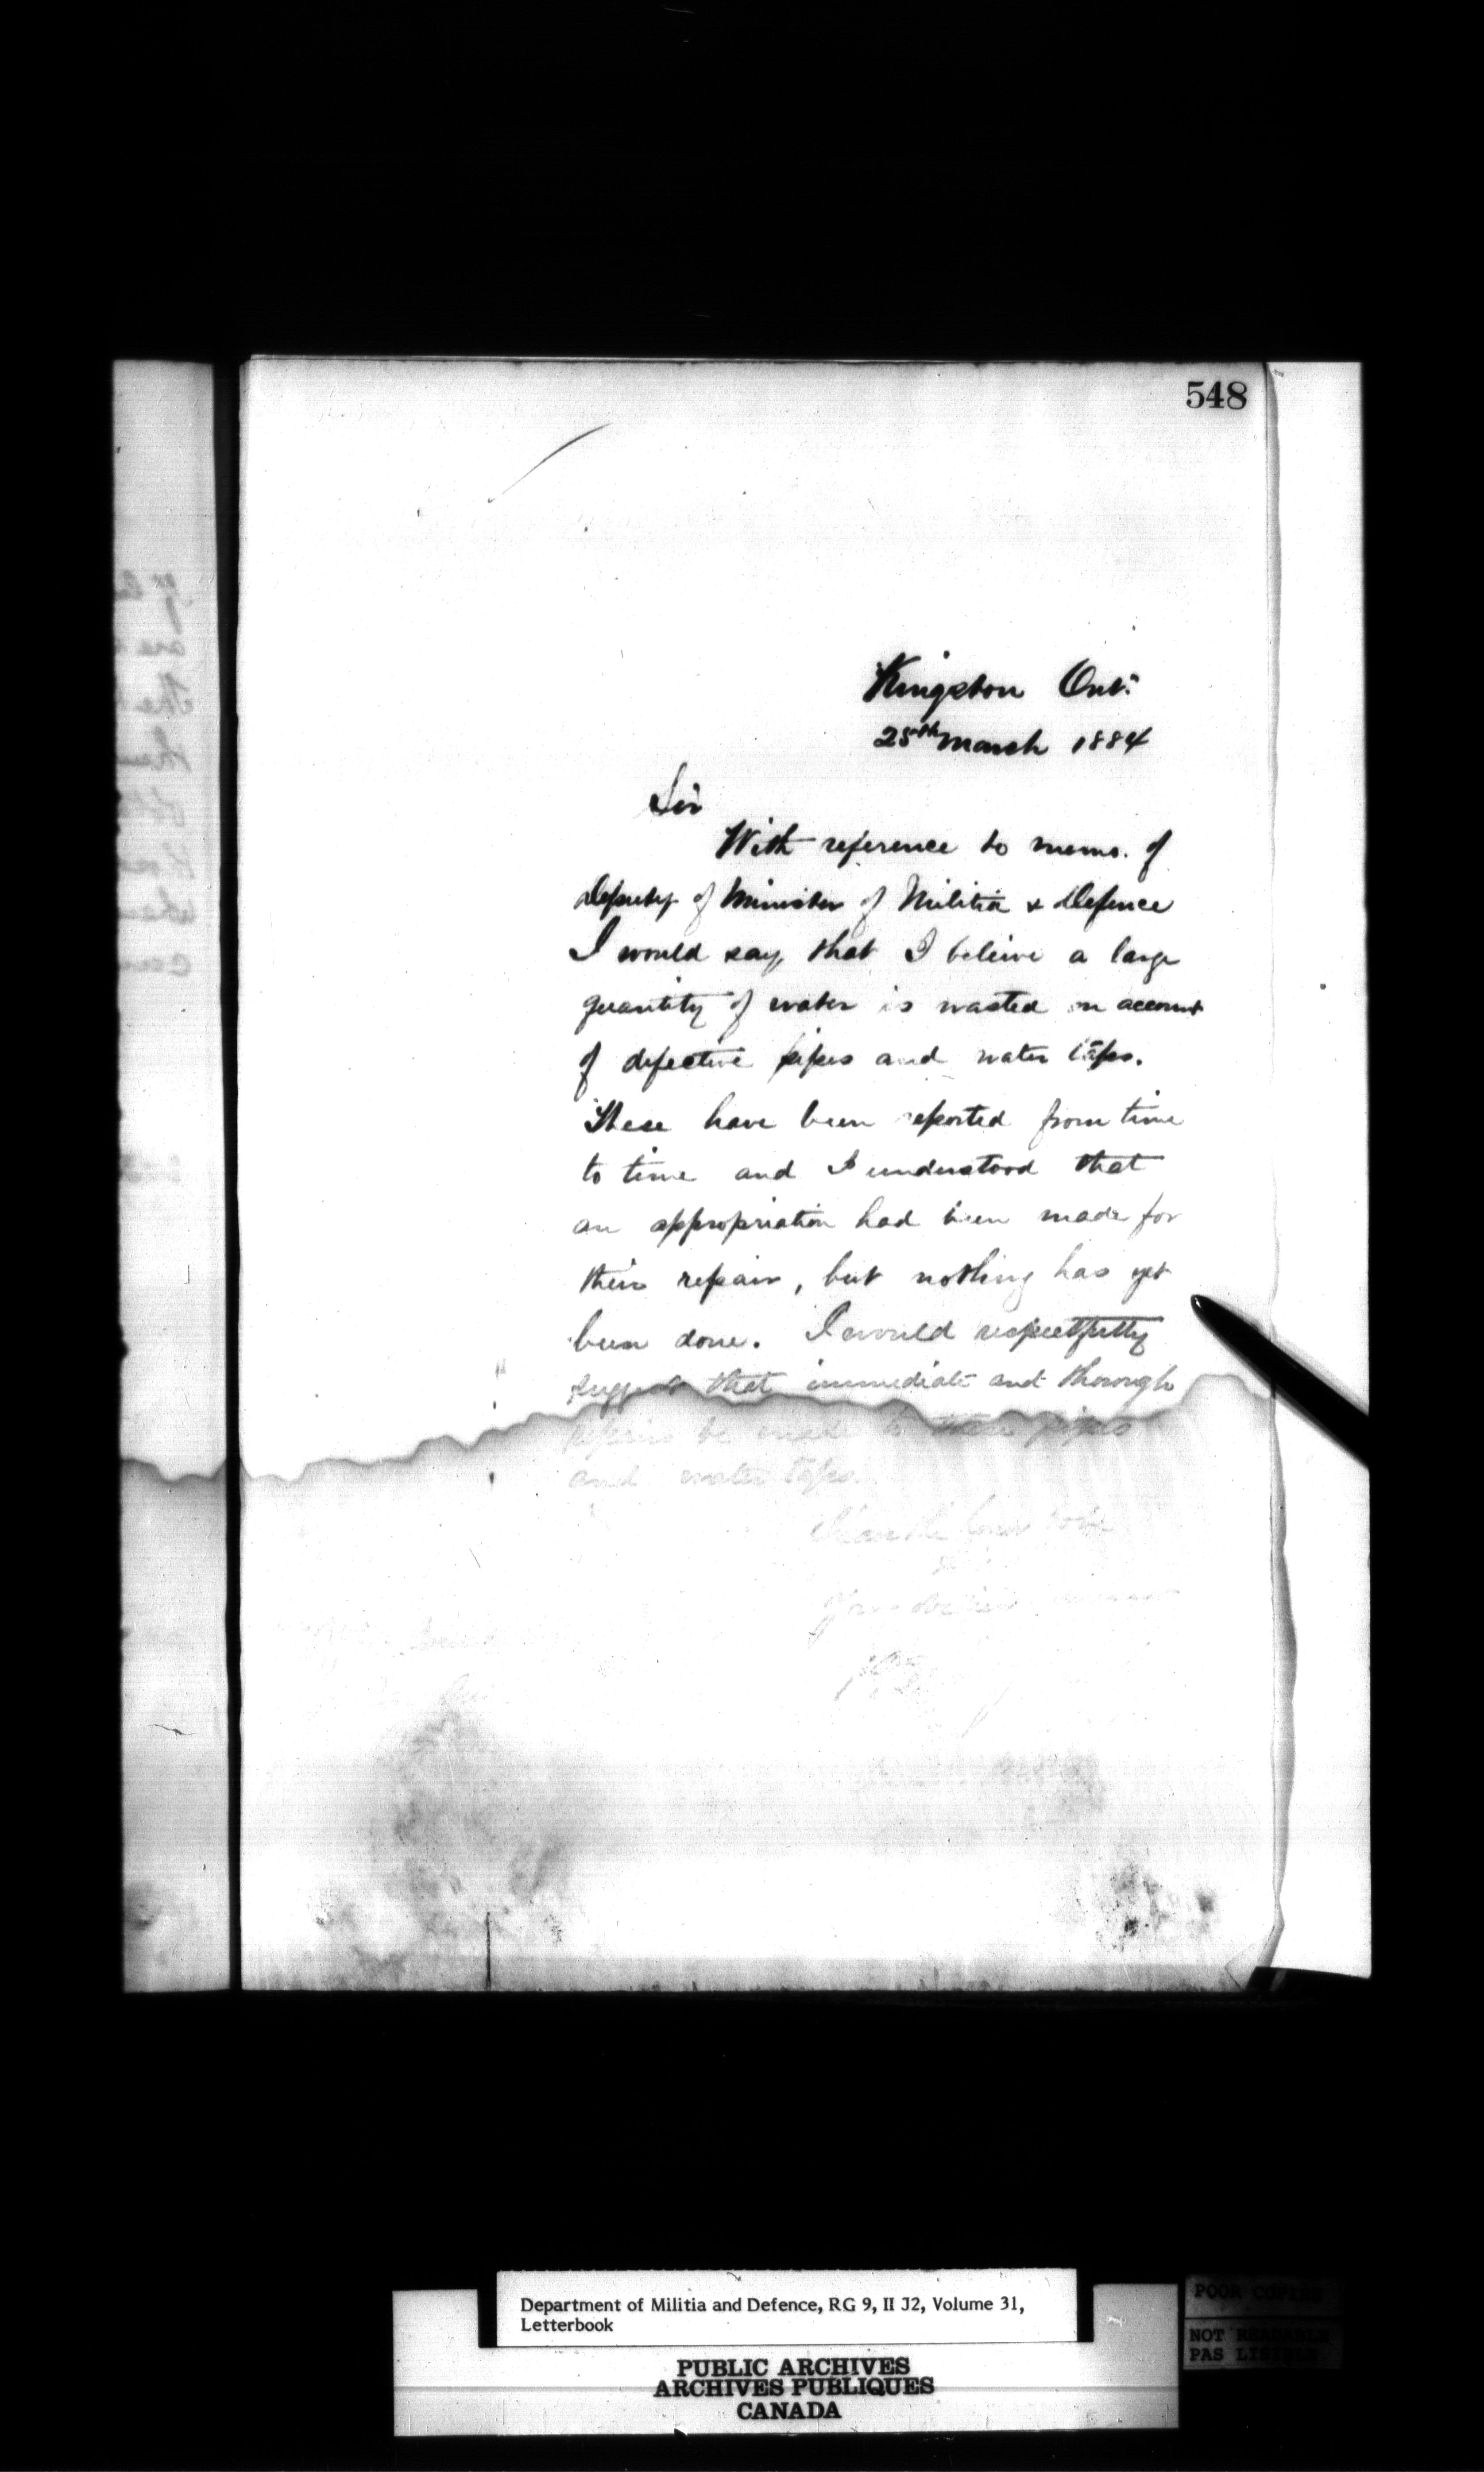 548
Kingston Ont.
25th March 1884
Sir
With reference to memo. of
Deputy of Minister of Militia & Defence
I would say, that I beleive a large
quantity of water is wasted on account
of defective pipes and water taps.
These have been reported from time
to time and I understood that
an appropriation had been made for
their repair, but nothing has yet
been done. I would respectfully
suggest that immediate and thorough
repairs be made to these pipes
and water taps.
I have the honor to be
Department of Militia and Defence, RG 9, II J2, Volume 31,
Letterbook
PUBLIC ARCHIVES
ARCHIVES PUBLIQUES
CANADA
POOR COPIES
NOT READABLE
PAS LISIBLE